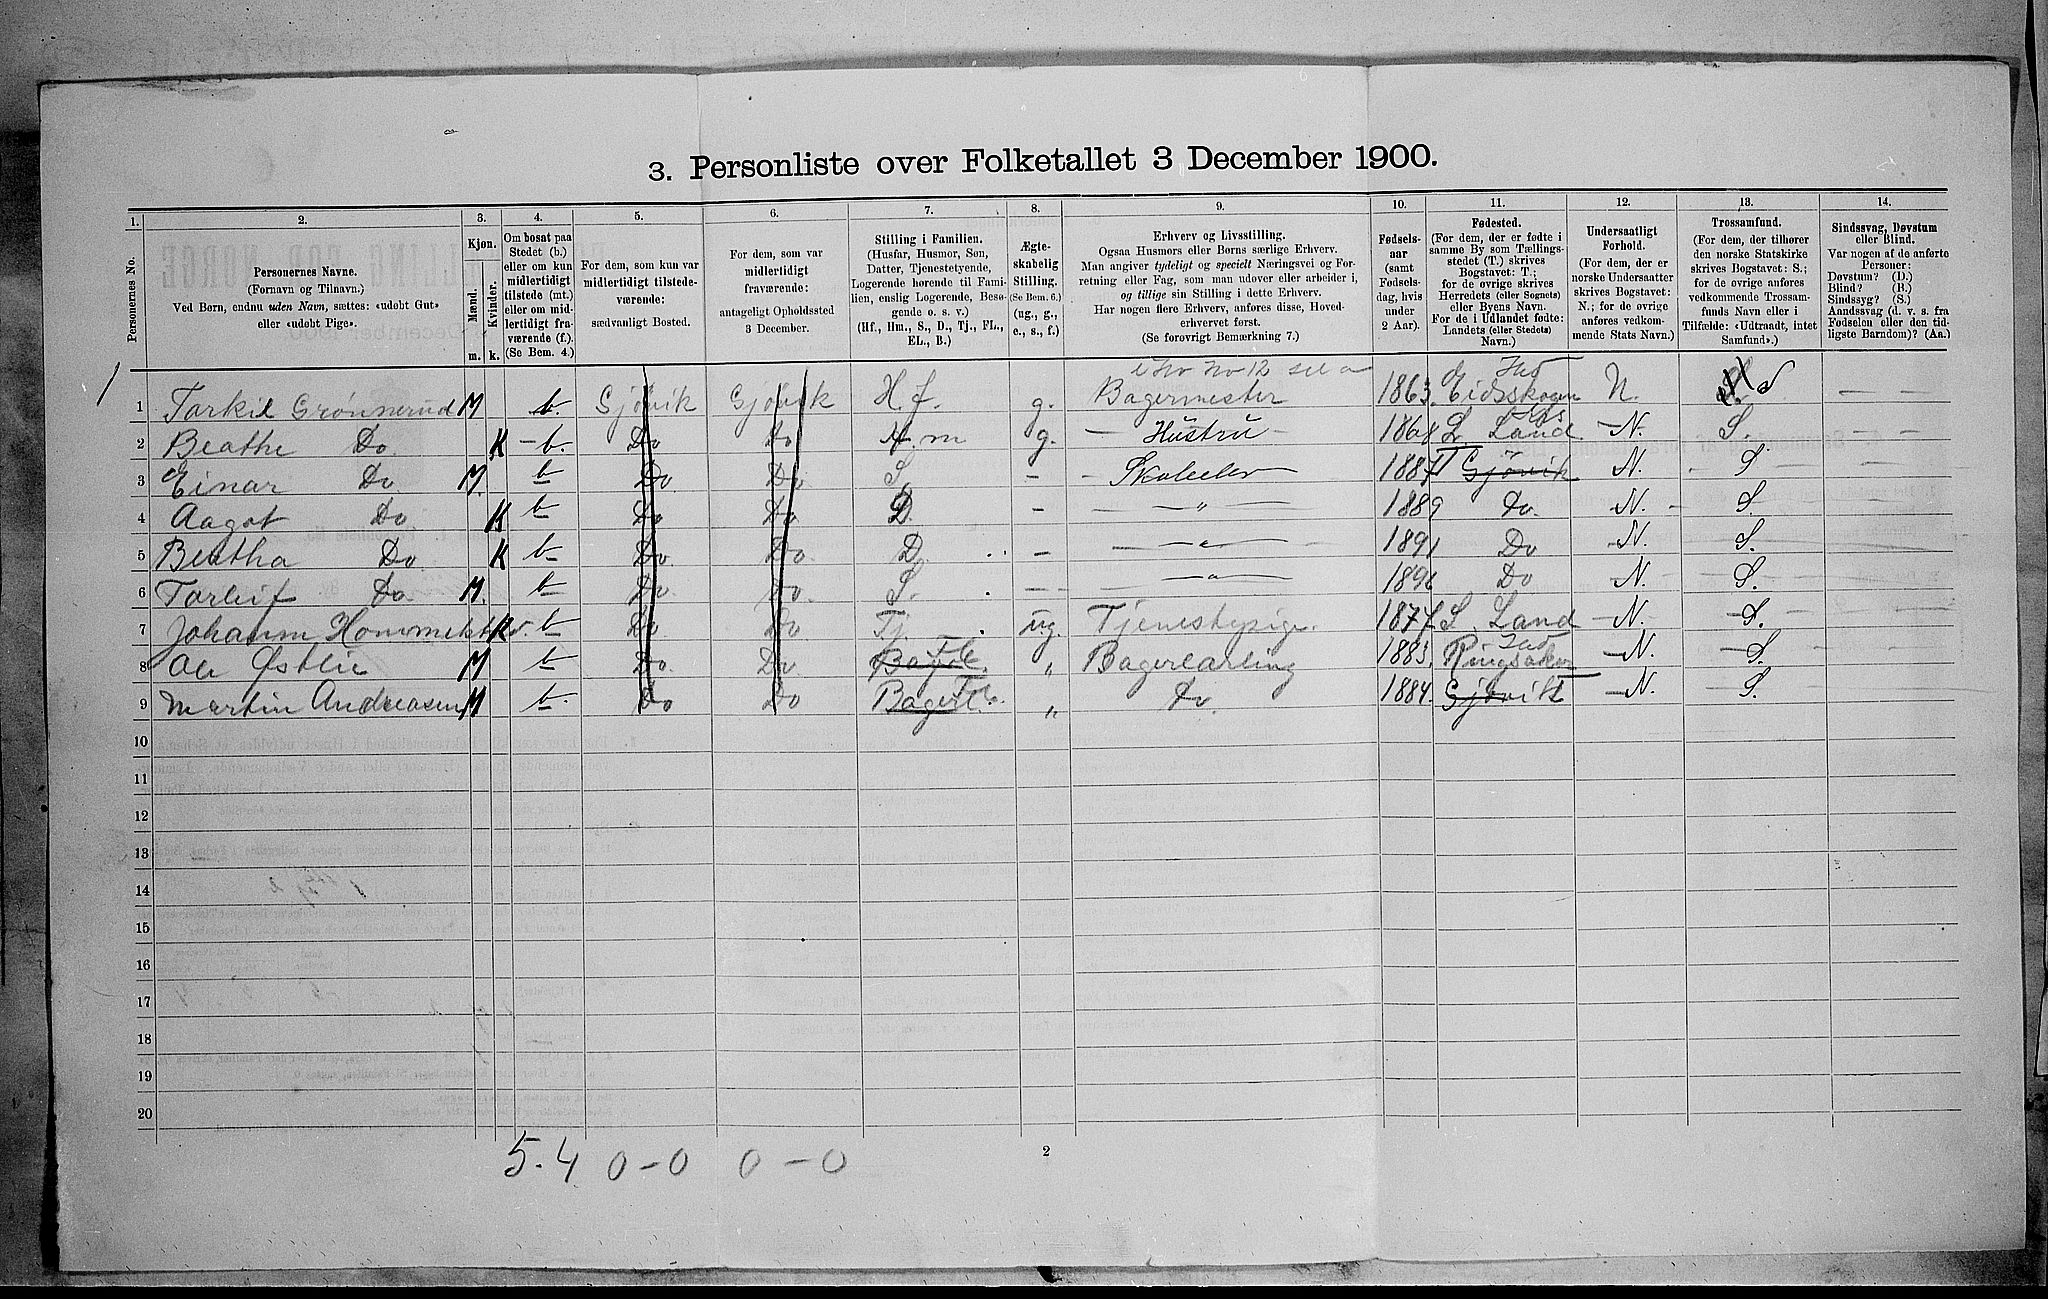 3. Personliste over Folketallet 3 December 1900.
1. 2. 3. 4. 5. 6. 7. 8. 9. 10. 11. 12. 13. 14.
Personernes No.
Personernes Navne.
(Fornavn og Tilnavn.)
Ved Børn, endnu uden Navn, sættes: «udøbt Gut»
eller «udøbt Pige».
Kjøn.
Mænd.
Kvinder.
m. k.
Om bosat paa
Stedet (b.)
eller om kun
midlertidigt
tilstede (mt.)
eller om mid-
lertidigt fra-
værende (f.).
(Se Bem. 4.)
For dem, som kun var
midlertidigt tilstede-
værende:
sædvanligt Bosted.
For dem, som var
midlertidigt
fraværende:
antageligt Opholdssted
3 December.
Stilling i Familien.
(Husfar, Husmor, Søn,
Datter, Tjenestetyende,
Logerende hørende til Fami-
lien, enslig Logerende, Besø-
gende o. s. v.)
(Hf., Hm., S., D., Tj., FL.,
EL., B.)
Ægte-
skabelig
Stilling.
(Se Bem. 6.)
(ug., g.,
e., s., f.)
Erhverv og Livsstilling.
Ogsaa Husmors eller Børns særlige Erhverv.
Man angiver tydeligt og specielt Næringsvei og For-
retning eller Fag, som man udøver eller arbeider i,
og tillige sin Stilling i dette Erhverv.
Har nogen flere Erhverv, anføres disse, Hoved-
erhvervet først.
(Se forøvrigt Bemærkning 7.)
Fødsels-
aar
(samt
Fødsels-
dag, hvis
under
2 Aar).
Fødested.
(For dem, der er fødte i
samme By som Tællings-
stedet (T.) skrives
Bogstavet: T.;
for de øvrige skrives
Herredets (eller Sognets)
eller Byens Navn.
For de i Udlandet fødte:
Landets (eller Stedets)
Navn.)
Undersaatligt
Forhold.
(For dem, der er
norske Undersaatter
skrives Bogstavet:
N.; for de øvrige
anføres vedkom-
mende Stats Navn.)
Trossamfund.
(For dem, der tilhører
den norske Statskirke
skrives Bogstavet: S.;
for de øvrige anføres
vedkommende Trossam-
funds Navn eller i
Tilfælde: «Udtraadt, intet
Samfund».)
Sindssvag, Døvstum
eller Blind.
Var nogen af de anførte
Personer:
Døvstum? (D.)
Blind? (B.)
Sindssyg? (S.)
Aandssvag (d. v. s. fra
Fødselen eller den tid-
ligste Barndom)? (Aa.)
1
1 Tarkil Grønnerud M b. Gjövik Gjövik H.f. g. Bagermester 1863. Eidsskogen N.
2 Beathe Do. K b. Do Do H.m g. Hustru 1868 Land N. S.
3 Einar Do M. b Do. Do S. Skoleelev 1887 T Gjövik N. S
4 Aagot Do K b Do Do D. " 1889 Do. N. S.
5 Beatha Do. K b Do. Do. D. " 1891 Do N. S.
6 Torleif Do M. b Do. Do. S. " 1896 Do N. S.
7 Johanne b Do Do Tj. ug. Tjenestepige. 1877 S. Land N. S.
8 Ole Østlie M b Do. Do. FL. " Bagerlærling 1883. Ringsaker N. S
9 Martin Andreasen M b. Do Do Bagerl. FL. " Do. 1884. Gjövik T N. S.
10
11
12
13
14
15
16
17
18
19
20
5.4 0-0 0-0
2